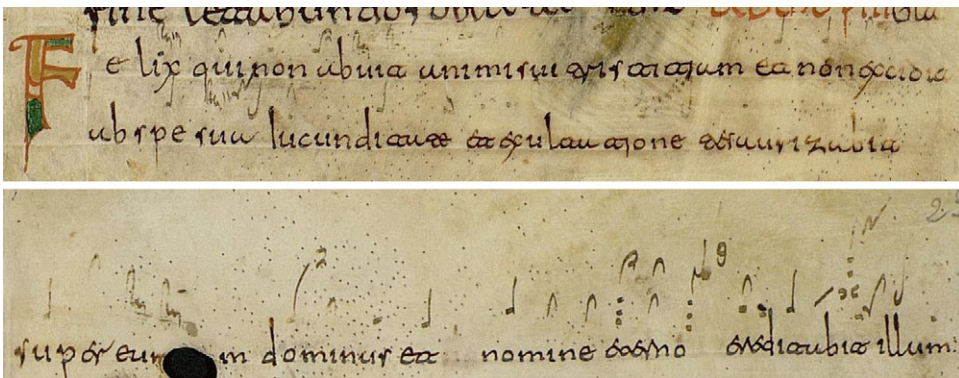 Fe lix qui non abuit animi sui tristitium et non excidit
ab spe sua Iucunditate et exultatione tesaurizabit
super eum dominus et nomine eterno ereditabit illum